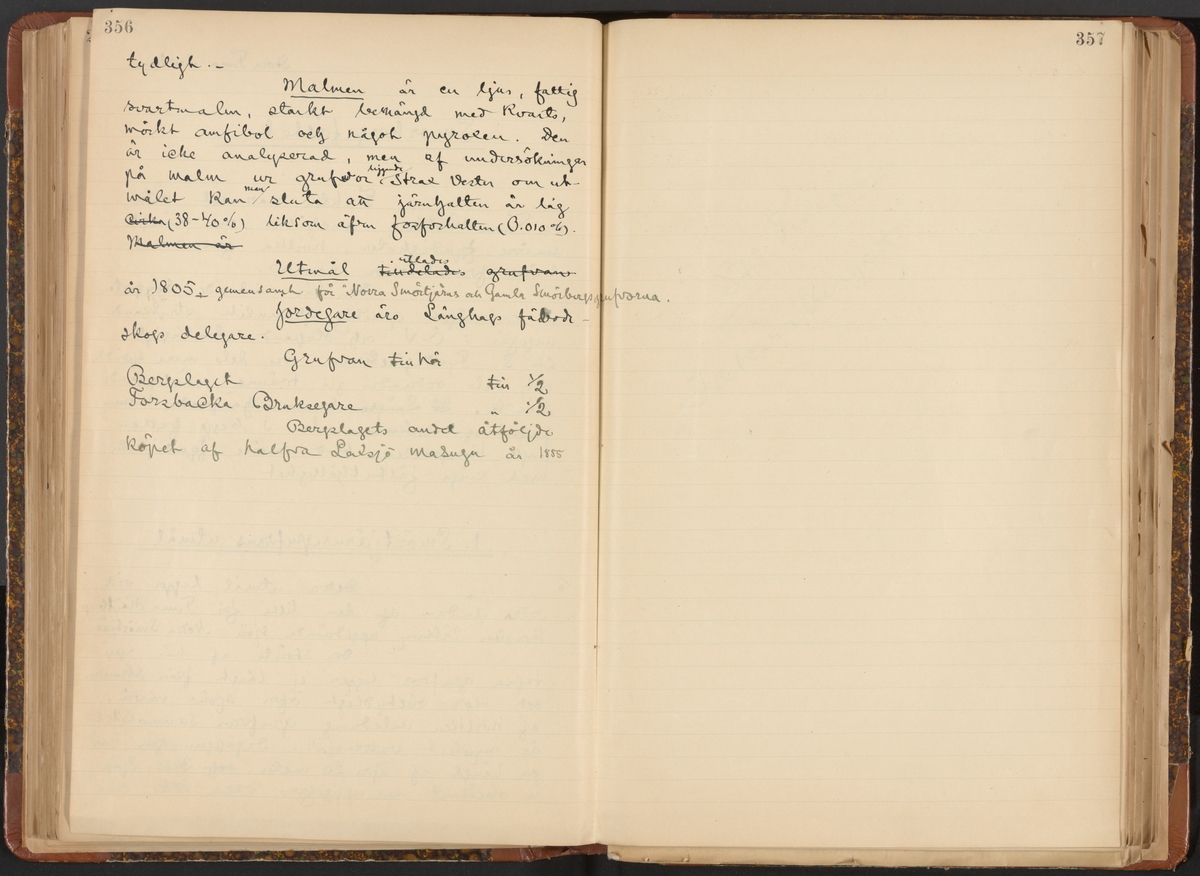 356
tydligt. –
Malmen är en ljus, fattig
svartmalm, starkt bemängd med Kvarts,
mörkt amfibol och något pyroxen. Den
är icke analyserad, men af undersökningar
på malm ur grufvor liggande strax Vester om ut-
målet kan man sluta att järnhalten är låg
cirka (38–40%) liksom äfven fosforhalten (0.010%).
Malmen är
Utmål tilldelades utlades grufvan
år 1805, gemensamt för "Norra Smörtjärns och Gamla Smörbergsgrufvorna.
Jordegare äro Långhags fäbode-
skogs delegare.
Grufvan tillhör
Bergslaget till 1/2
Forsbacka Bruksegare " 1/2
Bergslagets andel åtföljde
köpet af halfva Laxsjö masugn år 1855
357